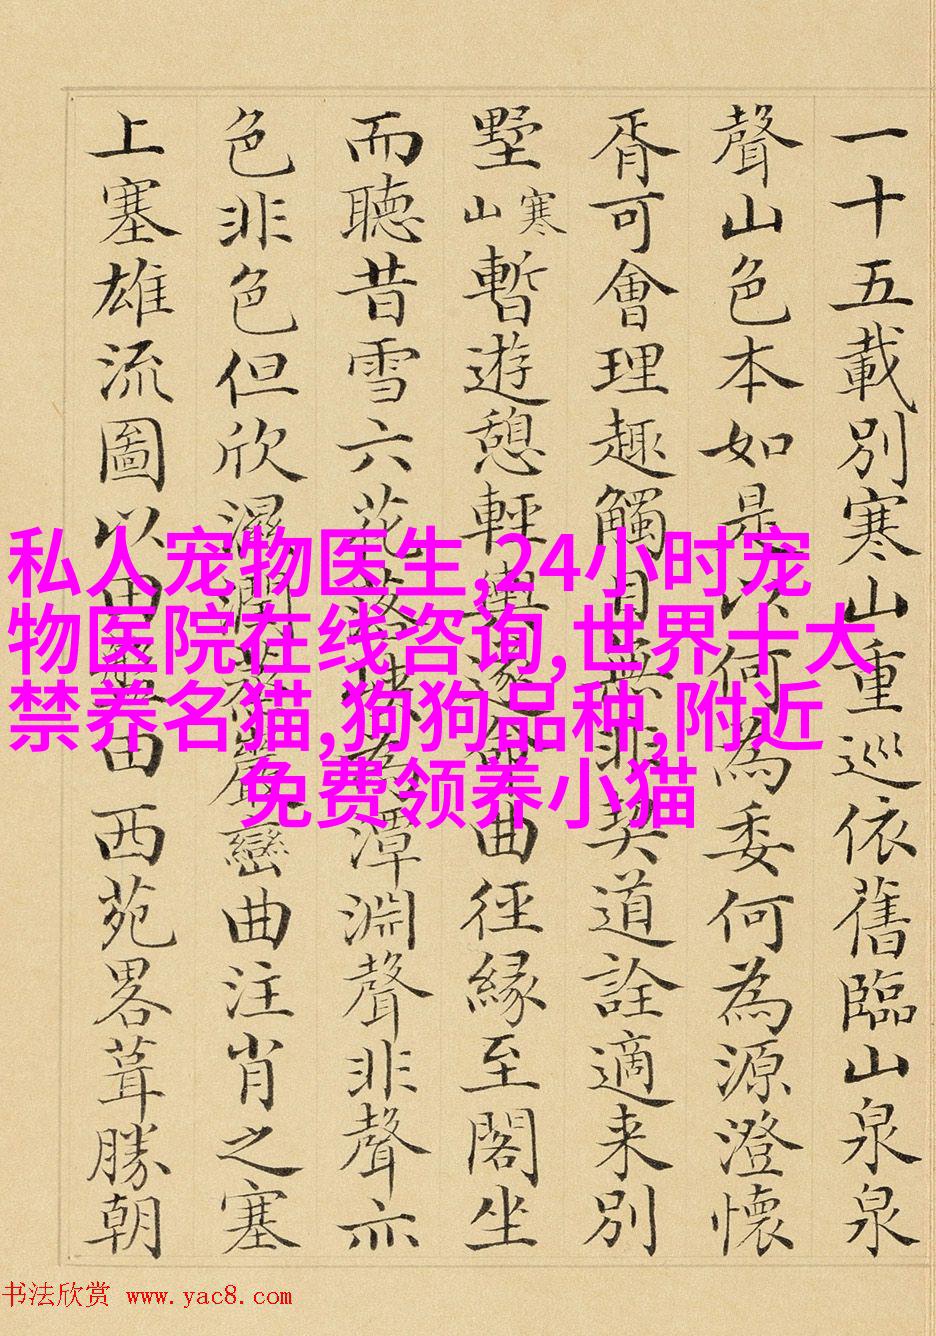 一十五載別寒山重巡依舊臨山泉泉
聲山色本如是以何為委何為源澄懷
胥可會理趣觸目無非契道詮適来別
墅寒山暫遊憩輕輿曲徑縁至閣坐
而聽昔雪六花潭淵聲非聲亦
色非色但欣濕潤巒曲注肖之塞
上塞雄流圖以田田西苑畧葺勝朝
私人宠物医生,24小时宠
物医院在线咨询,世界十大
禁养名猫,狗狗品种,附近
免费领养小猫
书法欣赏 www.yac8.com